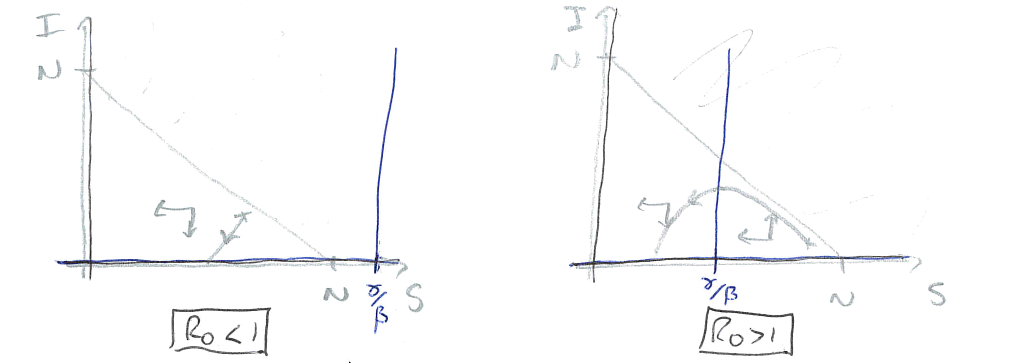 I
N
N
γ/β
S
R₀ < 1
I
N
γ/β
N
S
R₀ > 1